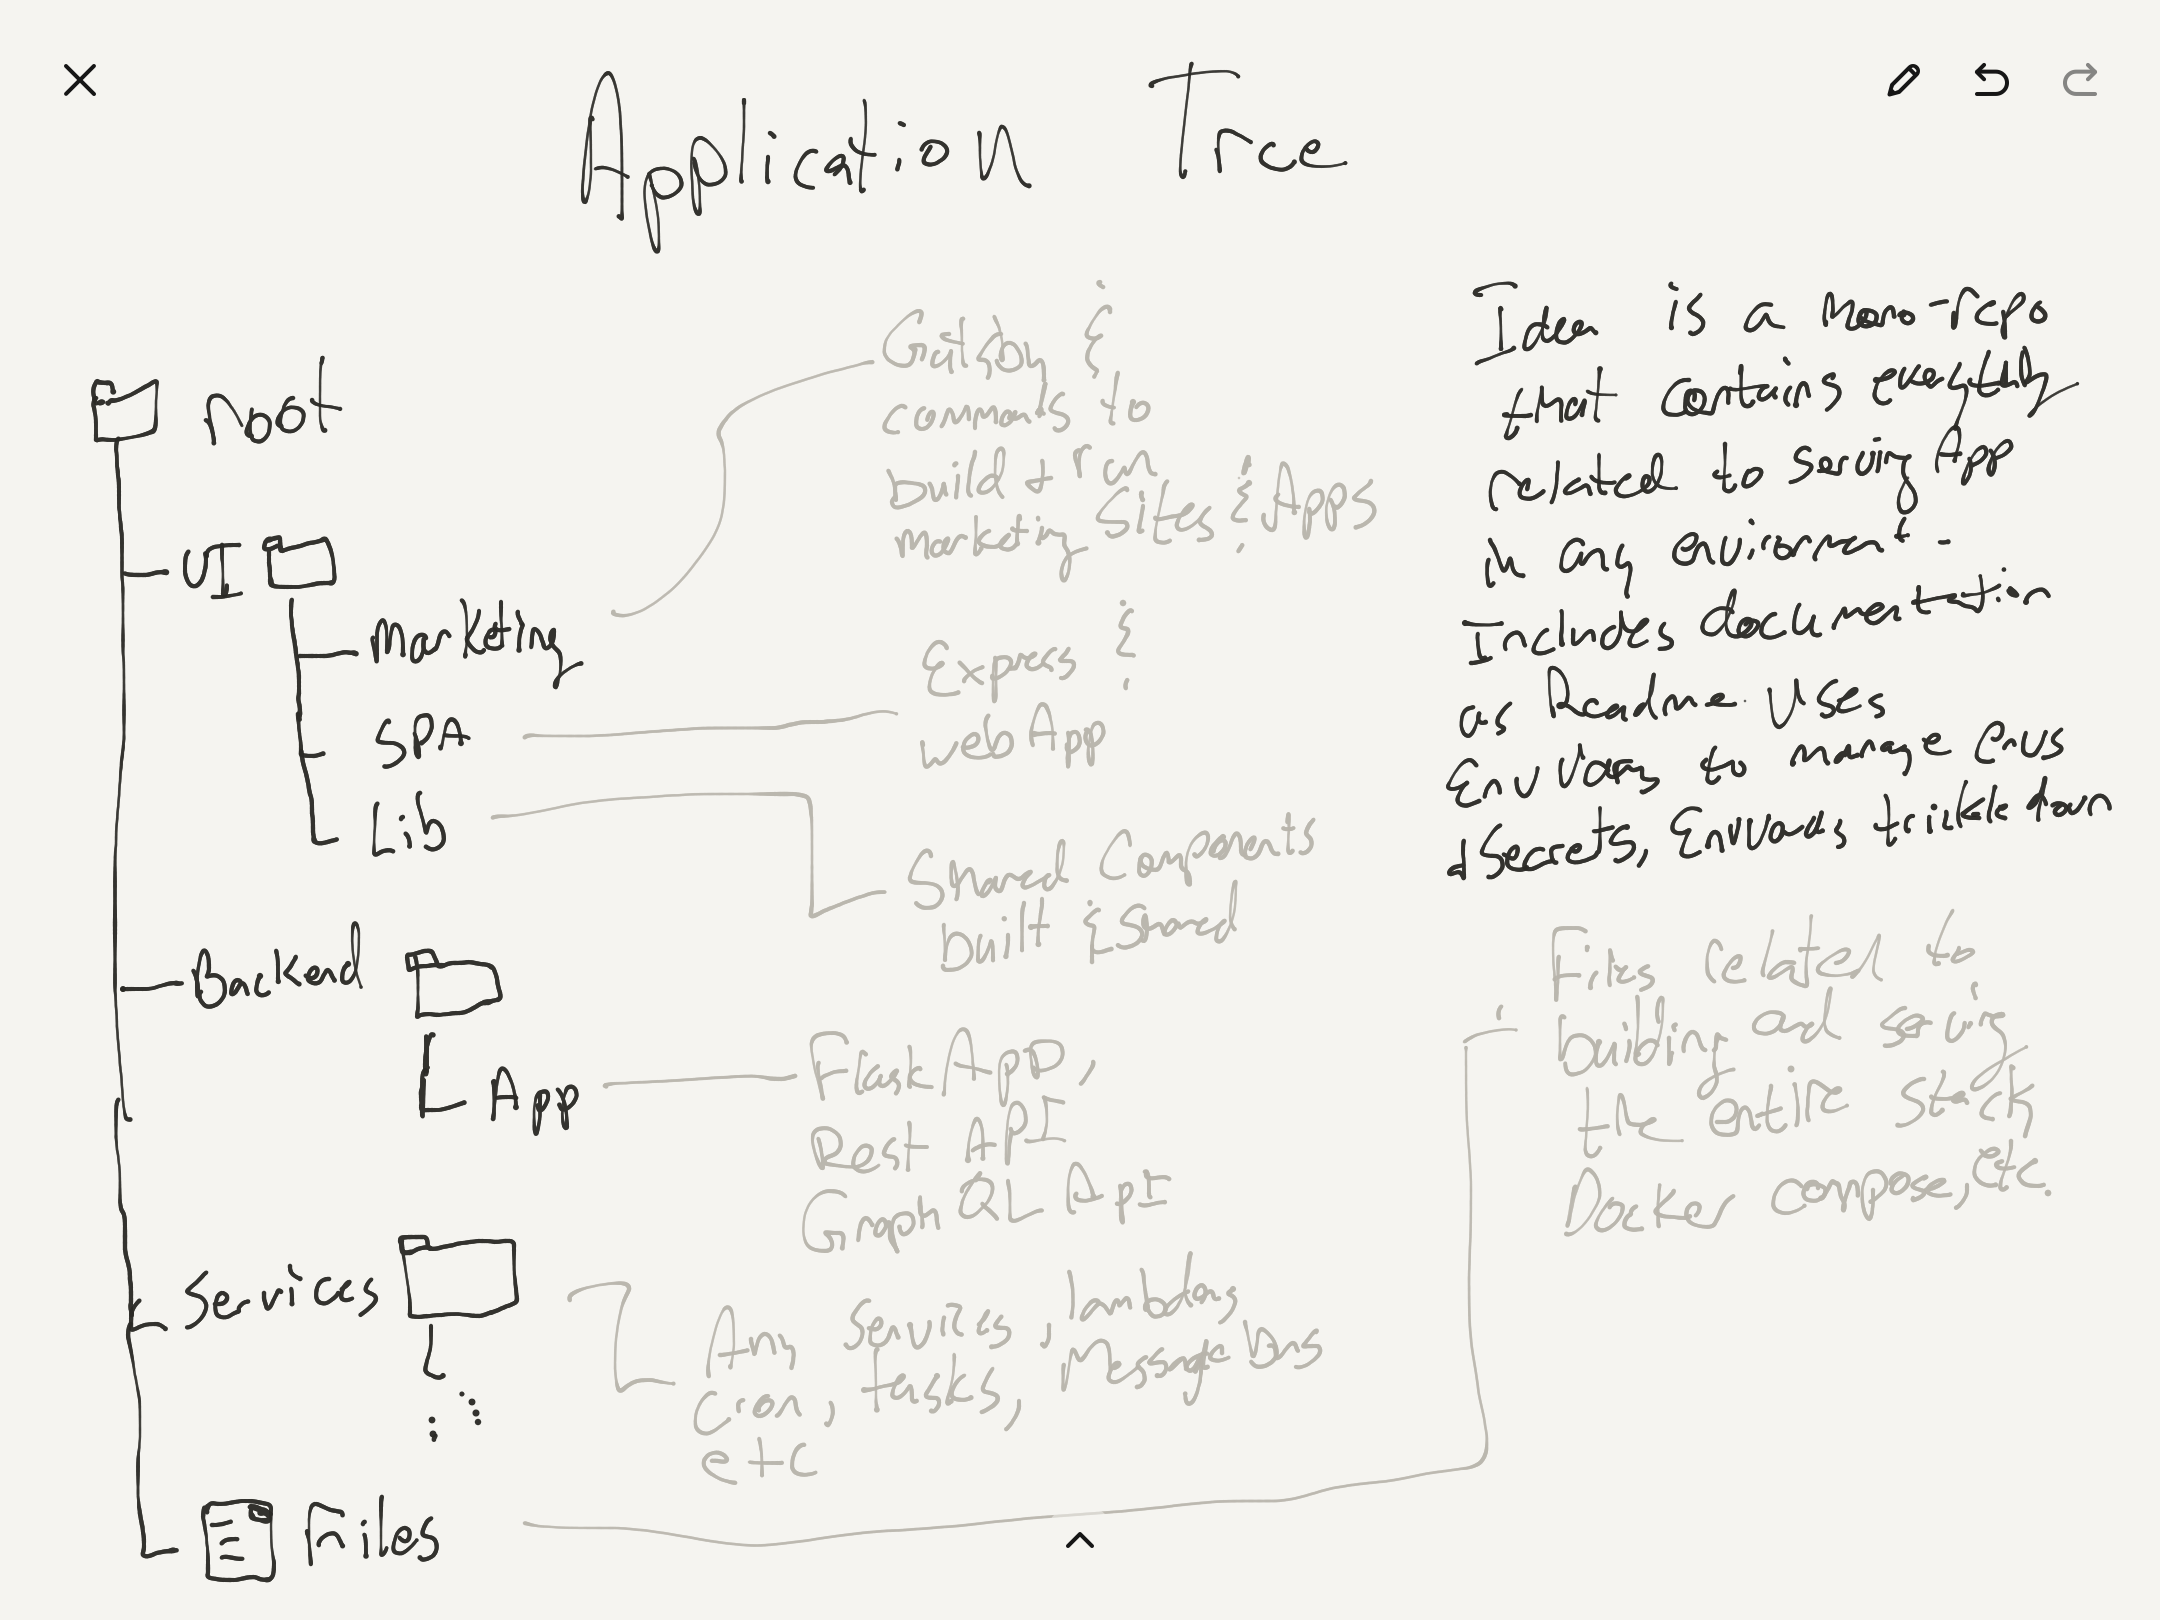 Application Tree
root
UI
Marketing
SPA
Lib
Backend
App
Services
Files
Gatsby &
commands to
build + run
marketing Sites & Apps
Express &
web App
Shared Components
built & shared
Flask App,
Rest API
GraphQL ApI
Any services, lambdas
Cron, tasks, Message bus
etc
Idea is a mono-repo
that contains everything
related to serving App
in any enviorment.
Includes documentation
as Readme. Uses
Env Vars to manage Envs
+ Secrets, EnvVars trickle down
Files related to
building and serving
the entire stack
Docker compose, etc.